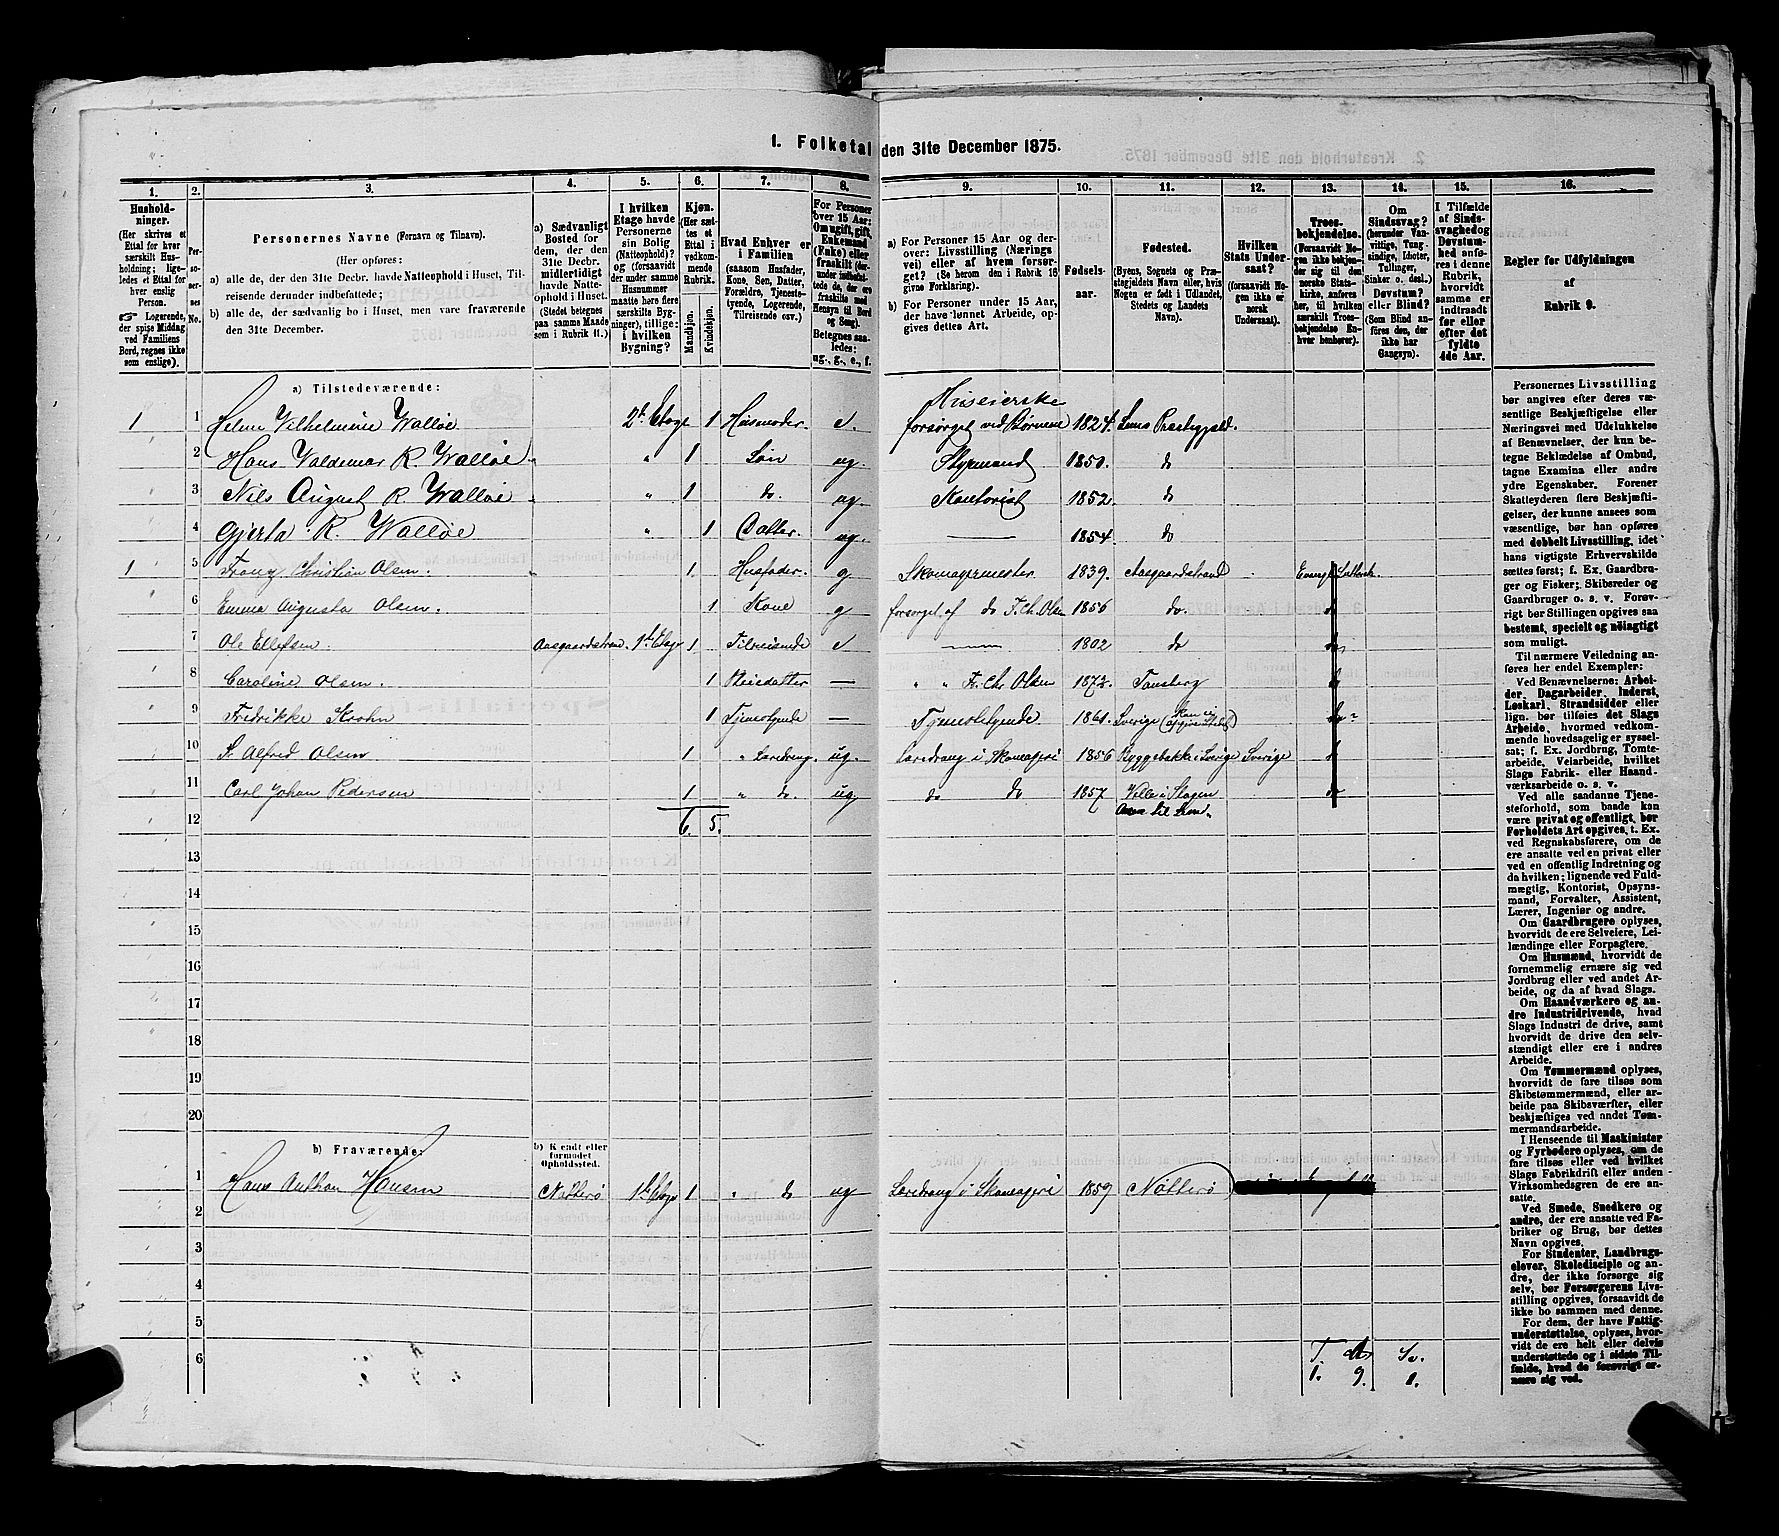 1. Folketal den 31te December 1875.
1. 2. 3. 4. 5. 6. 7. 8. 9. 10. 11. 12. 13. 14. 15. 16.
Husholdninger.
(Her skrives et Ettal for hver særskilt Husholdning; ligeledes et Ettal for hver enslig Person.
☞ Logerende, der spise Middag ved Familiens Bord, regnes ikke som enslige).
Personernes No.
Personernes Navne (Fornavn og Tilnavn).
(Her opføres:
a) alle de, der den 31te Decbr. havde Natteophold i Huset, Tilreisende derunder indbefattede;
b) alle de, der sædvanlig bo i Huset, men vare fraværende den 31te December.
a) Sædvanligt Bosted for dem, der den 31te Decbr. midlertidigt havde Natteophold i Huset. (Stedet betegnes paa samme Maade som i Rubrik 11.)
I hvilken Etage havde Personerne sin Bolig (Natteophold)? og (forsaavidt der under samme Husnummer maatte høre flere særskilte Bygninger), tillige: i hvilken Bygning?
Kjøn.
(Her sættes et Ettal i vedkommende Rubrik.
Mandkjøn.
Kvindekjøn.
Hvad Enhver er i Familien
(saasom Husfader, Kone, Søn, Datter, Forældre, Tjenestetyende, Logerende, Tilreisende osv.)
For Personer over 15 Aar: Om ugift, gift, Enkemand (Enke) eller fraskilt
Betegnes saaledes: ug., g., e., f.
a) For Personer 15 Aar og derover: Livsstilling (Næringsvei) eller af hvem forsørget? (Se herom den i Rubrik 16 givne Forklaring).
b) For Personer under 15 Aar, der have lønnet Arbeide, opgives dettes Art.
Fødselsaar.
Fødested.
(Byens, Sognets og Præstegjeldets Navn eller, hvis Nogen er født i Udlandet, Stedets og Landets Navn).
Hvilken Stats Undersaat?
(forsaavidt Nogen ikke er norsk Undersaat).
Troesbekjendelse.
(Forsaavidt Nogen ikke bekjender sig til den norske Statskirke, anføres her, til hvilken særskilt Troesbekjendelse Enhver henhører).
Om Sindssvag? (herunder Vanvittige, Tungsindige, Idioter, Tullinger, Sinker o. desl.) Døvstum? eller Blind? (Som Blind anføres den, der ikke har Gangsyn).
I Tilfælde af Sindssvaghed og Døvstumhed anføres i denne Rubrik, hvorvidt samme er indtraadt før eller efter det fyldte 4de Aar.
Regler for Udfyldningen af Rubrik 9.
a) Tilstedeværende:
1 1 Helene Vilhelmine Walløe 2d Etage 1 Husmoder e. Huseierske forsørget ved Børnene 1824. Sems Præstegjeld.
2 Hans Valdemar R. Walløe " 1 Søn ug. Styrmand 1850. do
3 Nils August R Walløe " 1 do. ug. Kontorist 1852. do
4 Gjerta R. Walløe " 1 Datter. ug. — 1854. do
1 5 Franz Christian Olsen. 1. Husfader. g. Skomagermester 1839. Aasgaardstrand
6 Emma Augusta Olsen. 1 Kone g forsørget af do F. Ch. Olsen 1856 do.
7 Ole Ellefsen Aasgaardstrand 1st Etage 1 Tilreisende e — 1802 do
8 Caroline Olsen. 1 Pleiedatter — " " Fr. Chr Olsen 1872. Tønsberg
9 Fredrikke Krohn 1 Tjenestetyende — Tjenestetyende 1861. Sverige
10 S. Alfred Olsen 1 " Læredreng ug. Læredreng i Skomageri 1856 Sverige Sverige
11 Carl Johan Pedersen 1 " do. ug do do 1857 Velle i Slagen
12 6. 5.
13
14
15
16
17
18
19
20
b) Fraværende:
b) Kjendt eller formodet Opholdssted.
1 Hans Anthon Hansen Nøtterø 1st Etage 1 " do ug Læredreng i Skomageri 1859 Nøtterø
2
3
4
5
6
1. 9. 1.
Personernes Livsstilling bør angives efter deres væsentlige Beskjæftigelse eller Næringsvei med Udelukkelse af Benævnelser, der kun betegne Beklædelse af Ombud, tagne Examina eller andre ydre Egenskaber. Forener Skatteyderen flere Beskjæftigelser, der kunne ansees som væsentlige, bør han opføres med dobbelt Livsstilling, idet hans vigtigste Erhvervskilde sættes først; f. Ex. Gaardbruger og Fisker; Skibsreder og Gaardbruger o. s. v. Forøvrigt bør Stillingen opgives saa bestemt, specielt og nøiagtigt som muligt.
Til nærmere Veiledning anføres her endel Exempler:
Ved Benævnelserne: Arbeider, Dagarbeider, Inderst, Løskarl, Strandsidder eller lign. bør tilføies det Slags Arbeide, hvormed vedkommende hovedsagelig er sysselsat; f. Ex. Jordbrug, Tomtearbeide, Veiarbeide, hvilket Slags Fabrik- eller Haandværksarbeide o. s. v.
Ved alle saadanne Tjenesteforhold, som baade kan være privat og offentligt, bør Forholdets Art opgives, t. Ex. ved Regnskabsførere, om de ere ansatte ved en privat eller ved en offentlig Indretning og da hvilken; lignende ved Fuldmægtig, Kontorist, Opsynsmand, Forvalter, Assistent, Lærer, Ingeniør og andre.
Om Gaardbrugere oplyses, hvorvidt de ere Selveiere, Leilændinge eller Forpagtere.
Om Husmænd, hvorvidt de fornemmelig ernære sig ved Jordbrug eller ved andet Arbeide, og da af hvad Slags.
Om Haandværkere og andre Industridrivende, hvad Slags Industri de drive, samt hvorvidt de drive den selvstændigt eller ere i andres Arbeide.
Om Tømmermænd oplyses, hvorvidt de fare tilsøs som Skibstømmermænd, eller arbeide paa Skibsværfter, eller beskjæftiges ved andet Tømmermandsarbeide.
I Henseende til Maskinister og Fyrbødere oplyses, om de fare tilsøs eller ved hvilket Slags Fabrikdrift eller anden Virksomhedsgren de ere ansatte.
Ved Smede, Snedkere og andre, der ere ansatte ved Fabriker og Brug, bør dettes Navn opgives.
For Studenter, Landbrugselever, Skoledisciple og andre, der ikke forsørge sig selv, bør Forsørgerens Livsstilling opgives, forsaavidt de ikke bo sammen med denne.
For dem, der have Fattigunderstøttelse, oplyses, hvorvidt de ere helt eller delvis understøttede og i sidste Tilfælde, hvad de forøvrigt ernære sig ved.